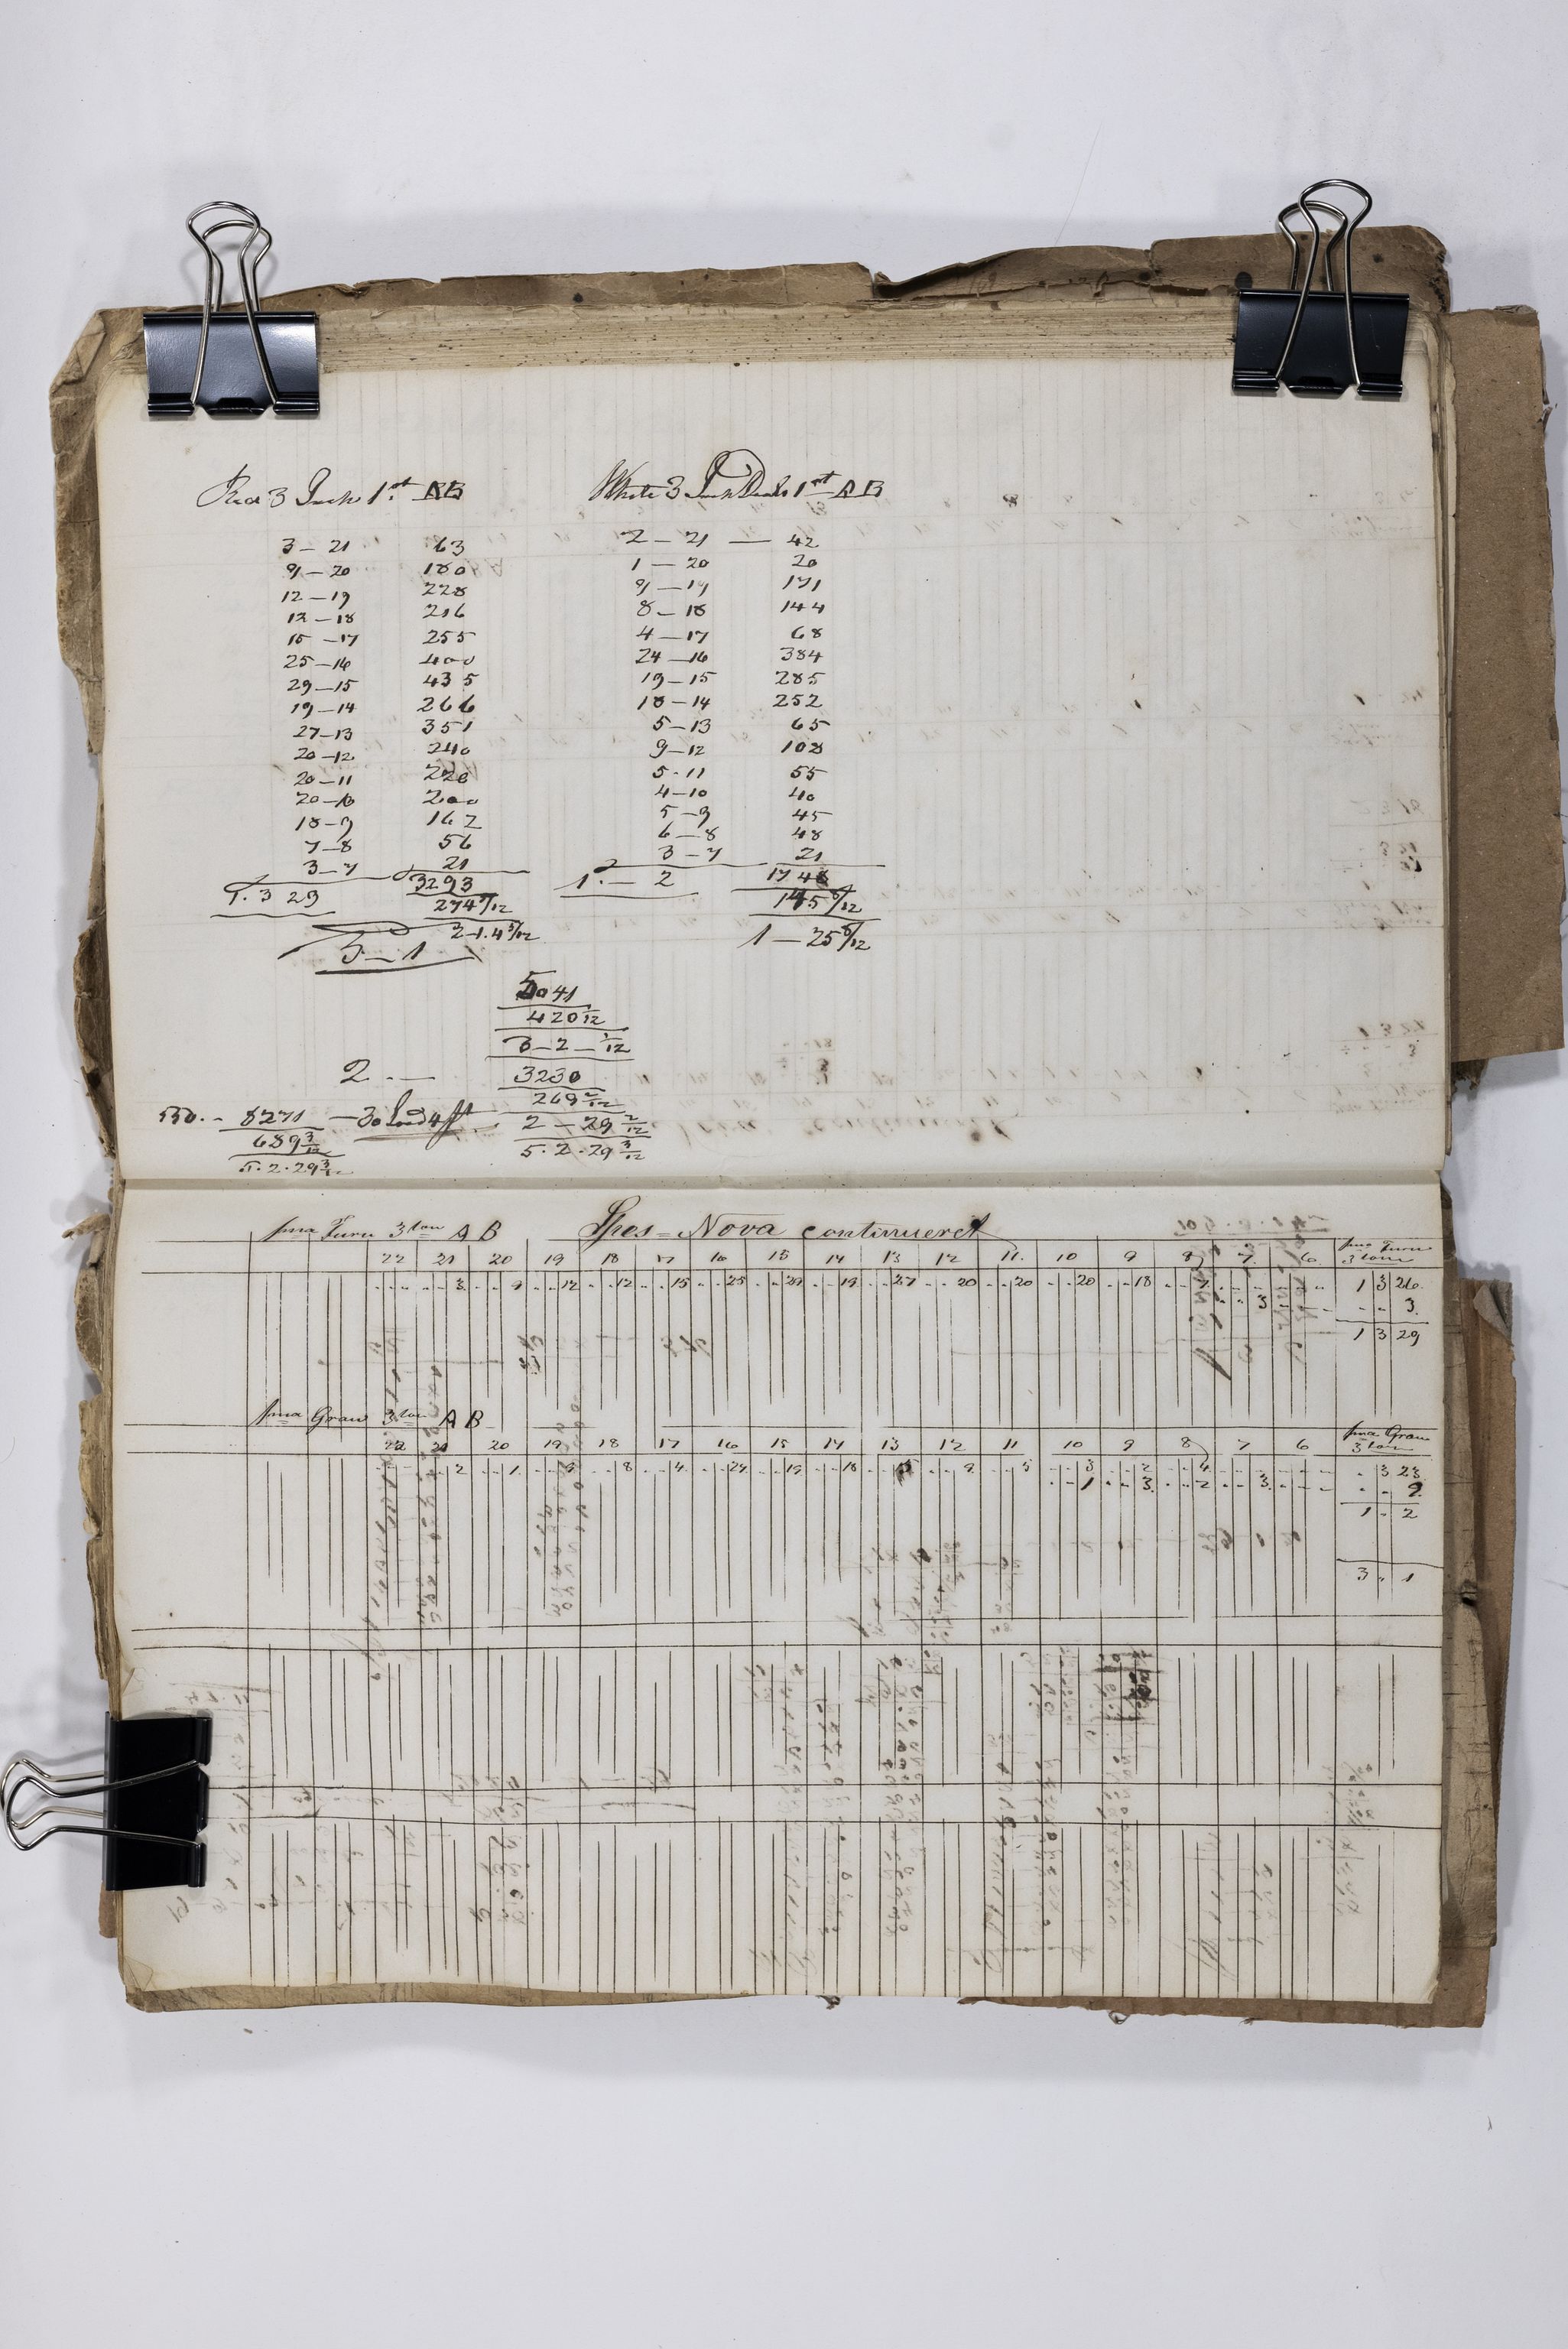 Red 3 Inch 1st AB
White 3 Inch Deals 1st AB
3 – 21 63
9 – 20 180
12 – 19 228
12 – 18 216
15 – 17 255
25 – 16 400
29 – 15 435
19 – 14 266
27 – 13 351
20 – 12 240
20 – 11 220
20 – 10 200
18 – 9 162
7 – 8 56
3 – 7 21
1. 3 29 3293
274 5/12
2-1.4 5/12
3 – 1
2 – 21 — 42
1 – 20 20
9 – 19 171
8 – 18 144
4 – 17 68
24 – 16 384
19 – 15 285
18 – 14 252
5 – 13 65
9 – 12 108
5 - 11 55
4 – 10 40
5 – 9 45
6 – 8 48
3 – 7 21
1. – 2 1748
145 8/12
1 – 25 8/12
5041
420 1/12
3 – 2 – 1/12
2 . —
3230
269 2/12
2 – 29 2/12
5 . 2 . 29 3/12
550. – 8271 – 30 Load 4 ft
689 3/12
5 . 2 . 29 3/12
pma Furu 3 tom A B Spes = Nova continueret
22 21 20 19 18 17 16 15 14 13 12 11. 10 9 8 7 6 pma Furu 3 tom
3 9 12 12 15 25 29 19 27 20 20 20 18 7 1 3 26.
3 - - 3.
1 3 29
pma Gran 3 tom A B
22 21 20 19 18 17 16 15 14 13 12 11 10 9 8 7 6 pma Gran 3 tom
2 1. 9 8 4. 24 19 18 5 9 5 3 2 4 - 3 23
1 3. 2 3. - - 9.
1 - 2
3 . 1